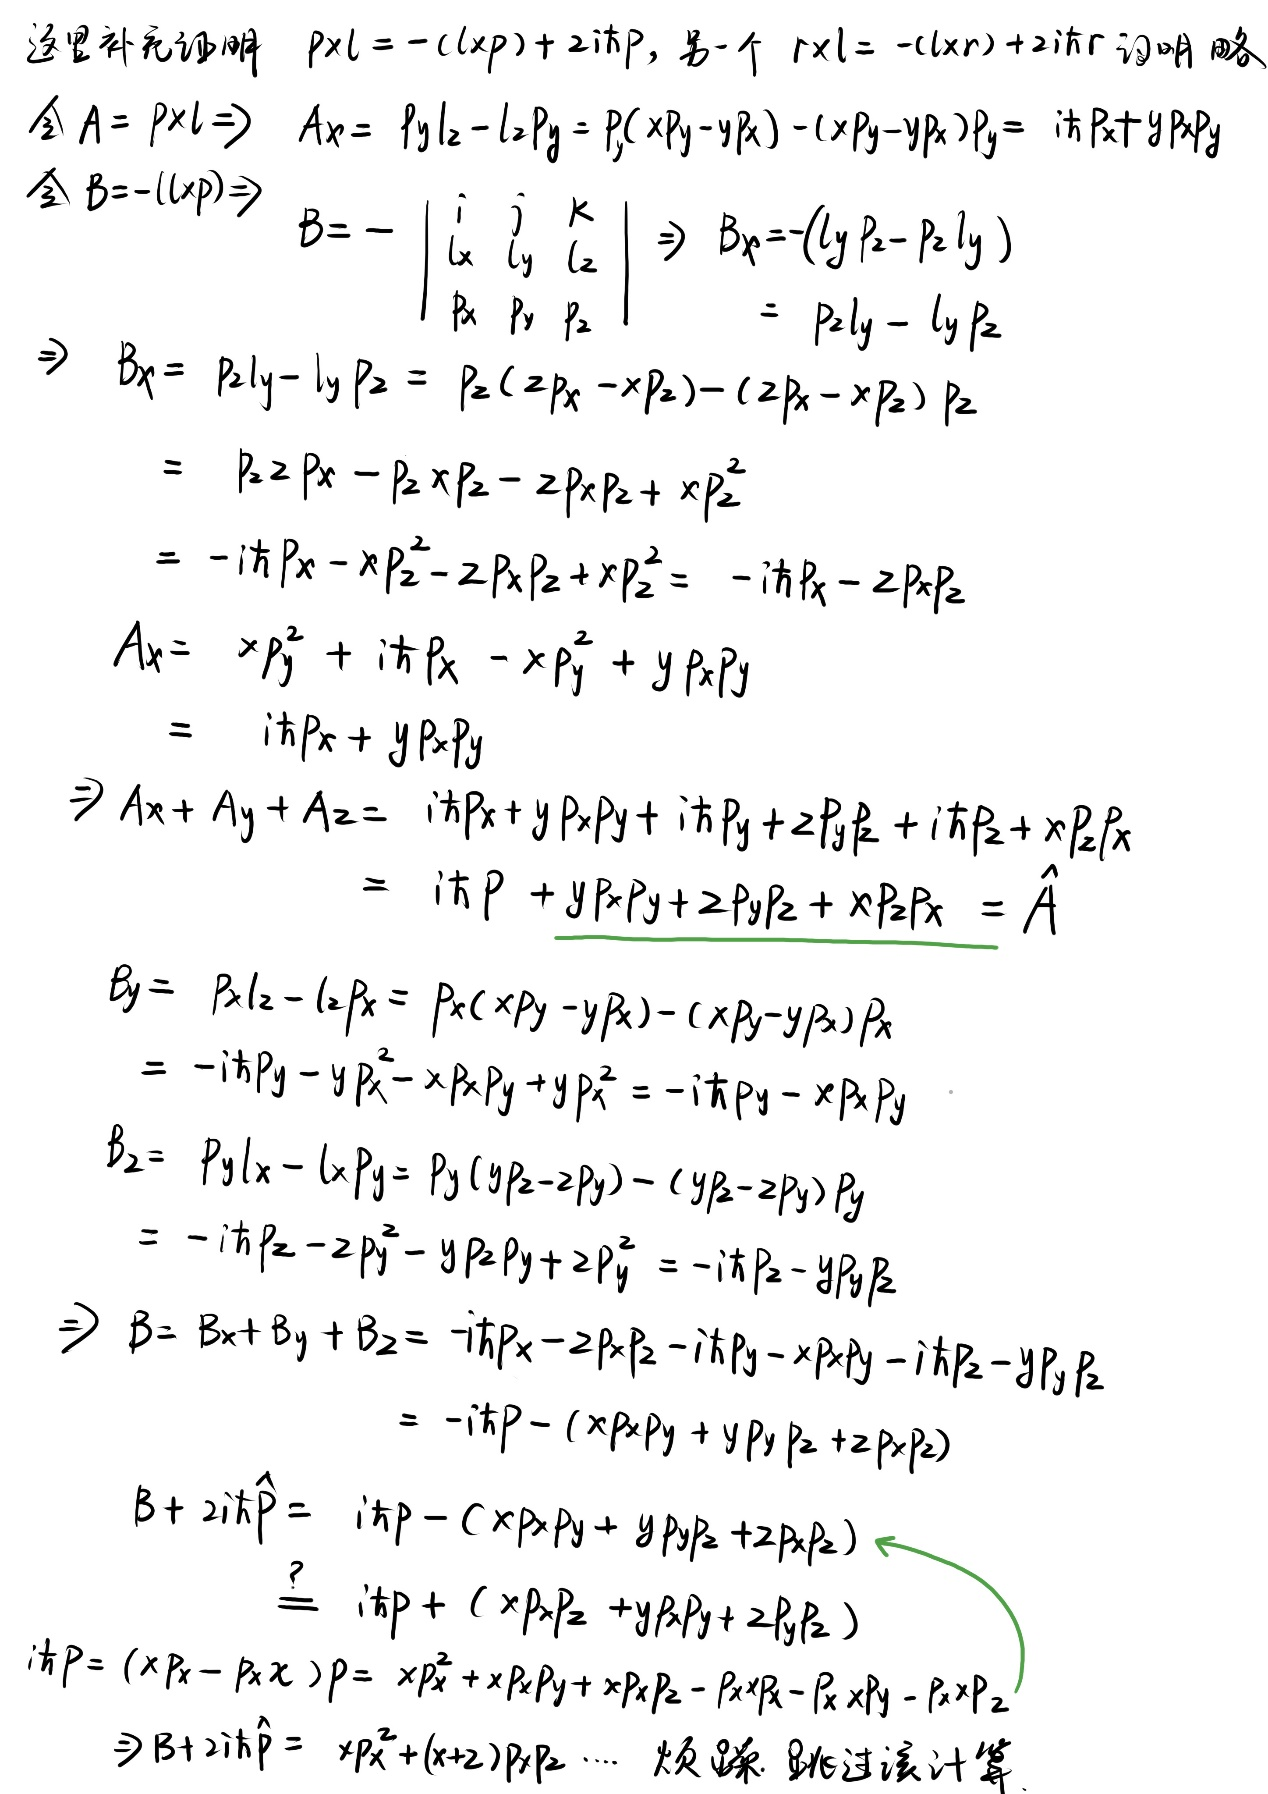 这里补充证明 p×l = -(l×p) + 2iħp, 另一个 r×l = -(l×r) + 2iħr 证明略
令 A = p×l ⇒ Ax = pylz - lzpy = py(xpy - ypx) - (xpy - ypx)py = iħpx + ypxpy
令 B = -(l×p) ⇒
B = - | i j k | ⇒ Bx = -(lypz - pzly)
lx ly lz
px py pz = pzly - lypz
⇒ Bx = pzly - lypz = pz(zpx - xpz) - (zpx - xpz)pz
= pzzpx - pzxpz - zpxpz + xpz²
= -iħpx - xpz² - zpxpz + xpz² = -iħpx - zpxpz
Ax = xpy² + iħpx - xpy² + ypxpy
= iħpx + ypxpy
⇒ Ax + Ay + Az = iħpx + ypxpy + iħpy + zpypz + iħpz + xpzpx
= iħp + ypxpy + zpypz + xpzpx = Â
By = pxlz - lzpx = px(xpy - ypx) - (xpy - ypx)px
= -iħpy - ypx² - xpxpy + ypx² = -iħpy - xpxpy
Bz = pylx - lxpy = py(ypz - zpy) - (ypz - zpy)py
= -iħpz - zpy² - ypzpy + zpy² = -iħpz - ypypz
⇒ B = Bx + By + Bz = -iħpx - zpxpz - iħpy - xpxpy - iħpz - ypypz
= -iħp - (xpxpy + ypypz + zpxpz)
B + 2iħp̂ = iħp - (xpxpy + ypypz + zpxpz)
?= iħp + (xpxpz + ypxpy + zpypz)
iħp = (xpx - pxx)p = xpx² + xpxpy + xpxpz - pxxpx - pxxpy - pxxpz
⇒ B + 2iħp̂ = xpx² + (x+z)pxpz ···· 烦躁. 跳过该计算.